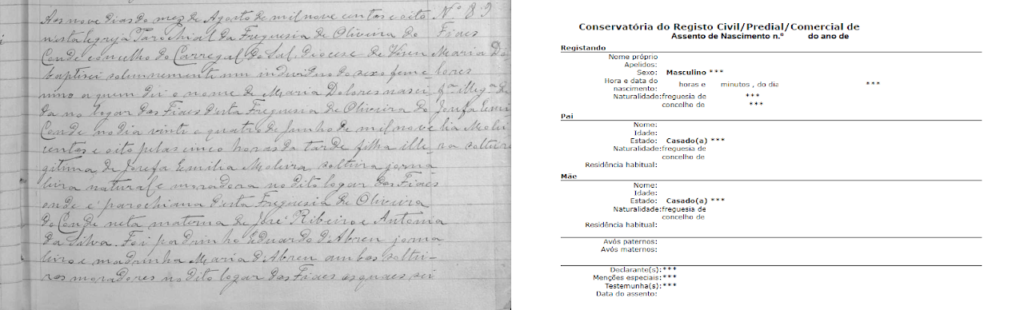 Aos nove dias do mez de Agosto de mil nove centos e oito
nesta egreja Parochial da Freguesia de Oliveira do
Conde concelho de Carregal do Sal, Diocese de Vizeu
baptisei solemnemente um individuo do sexo feme
nino a quem dei o nome de Maria Dolores nasci
da no logar dos Fiaes desta Freguesia de Oliveira do
Conde no dia vinte e quatro de Junho de mil nove
centos e oito pelas cinco horas da tarde filha ille
gitima de Josefa Emilia Moleira solteira jorna
leira natural e moradora no dito logar dos Fiaes
onde é parochiana desta Freguesia de Oliveira
do Conde neta materna de José Ribeiro e Antonia
da Silva. Foi padrinho Eduardo d'Abreu jorna
leiro e madrinha Maria d'Abreu ambos soltei-
ros moradores no dito logar dos Fiaes os quaes sei
Nº 89
Fiaes
Maria Do
lores
Josefa Emi
lia Molei
ra solteira
Conservatória do Registo Civil/Predial/Comercial de
Assento de Nascimento n.º do ano de
Registando
Nome próprio
Apelidos:
Sexo: Masculino ***
Hora e data do nascimento: horas e minutos , do dia ***
Naturalidade:freguesia de ***
concelho de ***
Pai
Nome:
Idade:
Estado: Casado(a) ***
Naturalidade:freguesia de
concelho de
Residência habitual:
Mãe
Nome:
Idade:
Estado: Casado(a) ***
Naturalidade:freguesia de
concelho de
Residência habitual:
Avós paternos:
Avós maternos:
Declarante(s):***
Menções especiais:***
Testemunha(s):***
Data do assento: